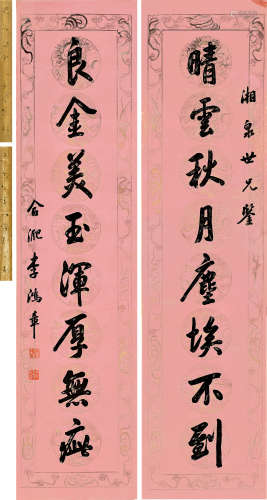 湘泉世兄鉴
晴雲秋月塵埃不到
良金美玉渾厚無疵
合淝李鴻章